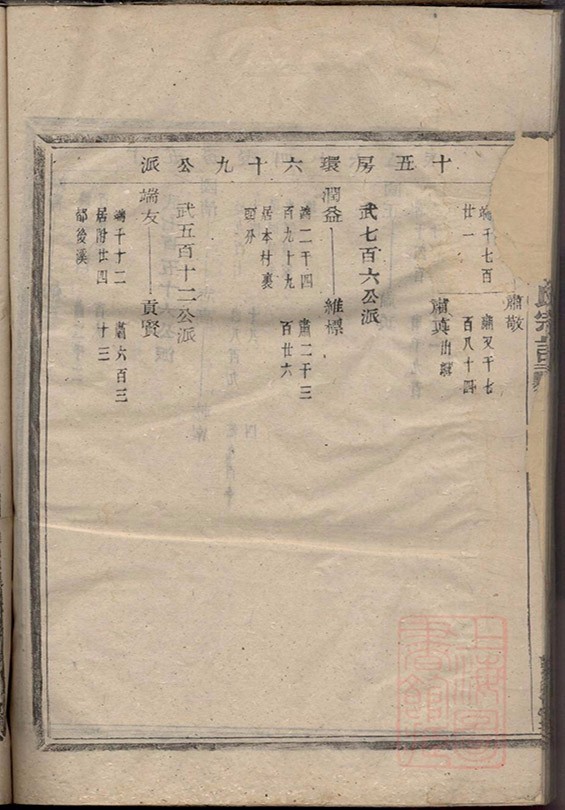 十五房璟六十九公派
肅敬
端千七百
廿一
肅又千七
百八十四
肅真出嗣
武七百六公派
潤益
維標
端二千四
百九十九
居本村裏
肅二千三
百廿六
武五百十二公派
端友
貢賢
端千十二
居附廿四
都後溪
肅六百三
十三
氏宗譜